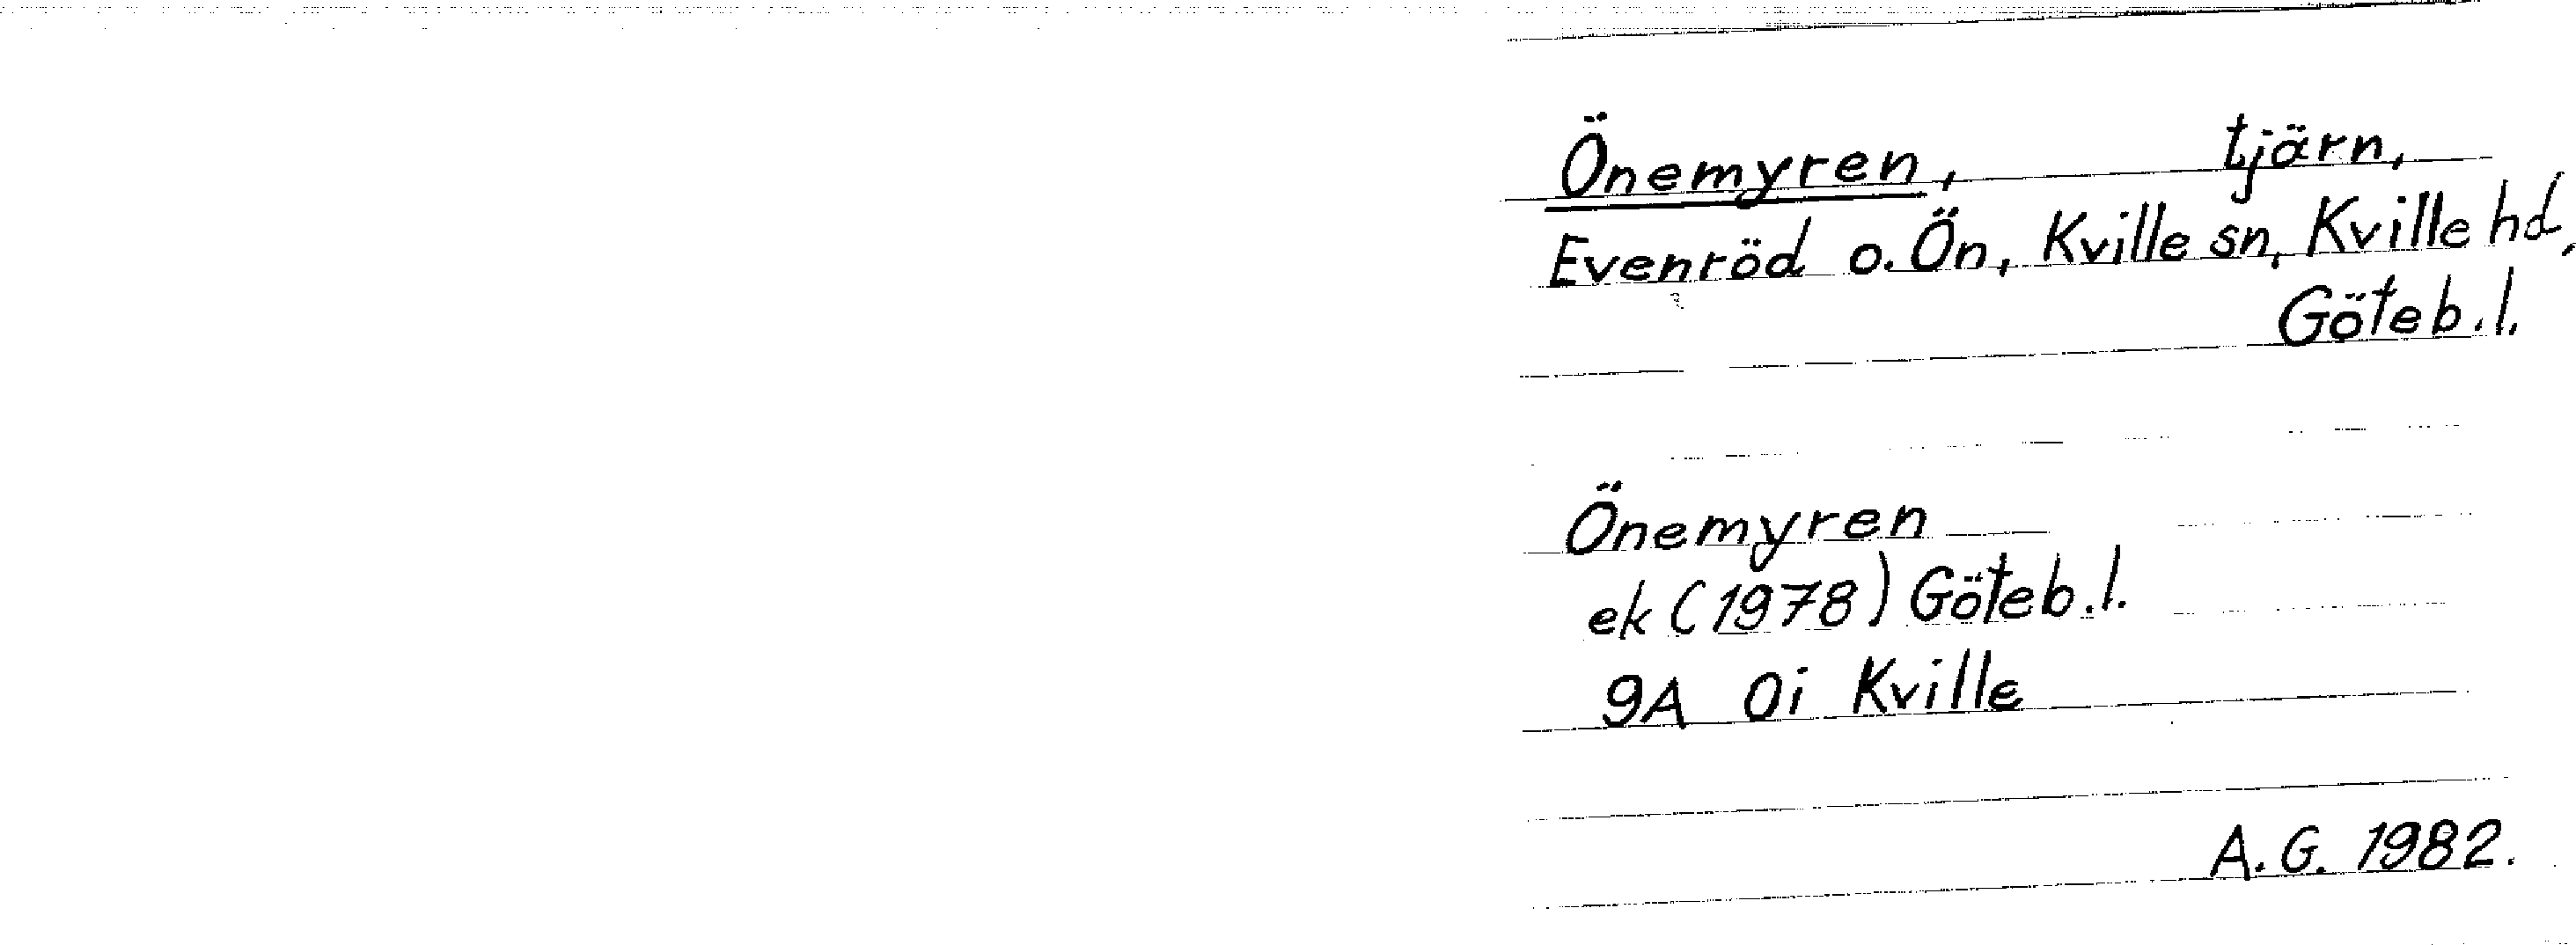 Önemyren, tjärn,
Evenröd o. Ön, Kville sn, Kville hd,
Göteb. l.
Önemyren
ek (1978) Göteb. l.
9A 0i Kville
A. G. 1982.